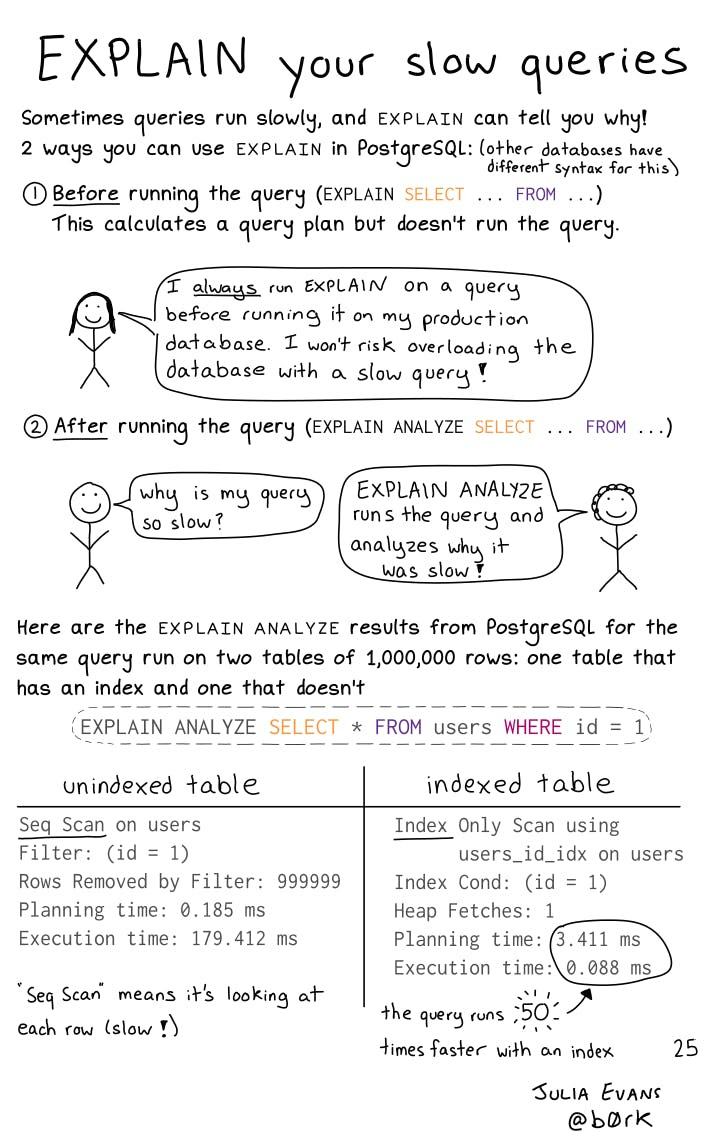 EXPLAIN your slow queries
Sometimes queries run slowly, and EXPLAIN can tell you why!
2 ways you can use EXPLAIN in PostgreSQL: (other databases have
different syntax for this)
① Before running the query (EXPLAIN SELECT ... FROM ...)
This calculates a query plan but doesn't run the query.
I always run EXPLAIN on a query
before running it on my production
database. I won't risk overloading the
database with a slow query!
② After running the query (EXPLAIN ANALYZE SELECT ... FROM ...)
why is my query
so slow?
EXPLAIN ANALYZE
runs the query and
analyzes why it
was slow!
Here are the EXPLAIN ANALYZE results from PostgreSQL for the
same query run on two tables of 1,000,000 rows: one table that
has an index and one that doesn't
EXPLAIN ANALYZE SELECT * FROM users WHERE id = 1
unindexed table
Seq Scan on users
Filter: (id = 1)
Rows Removed by Filter: 999999
Planning time: 0.185 ms
Execution time: 179.412 ms
"Seq Scan" means it's looking at
each row (slow!)
indexed table
Index Only Scan using
users_id_idx on users
Index Cond: (id = 1)
Heap Fetches: 1
Planning time: 3.411 ms
Execution time: 0.088 ms
the query runs 50
times faster with an index
25
JULIA EVANS
@b0rk